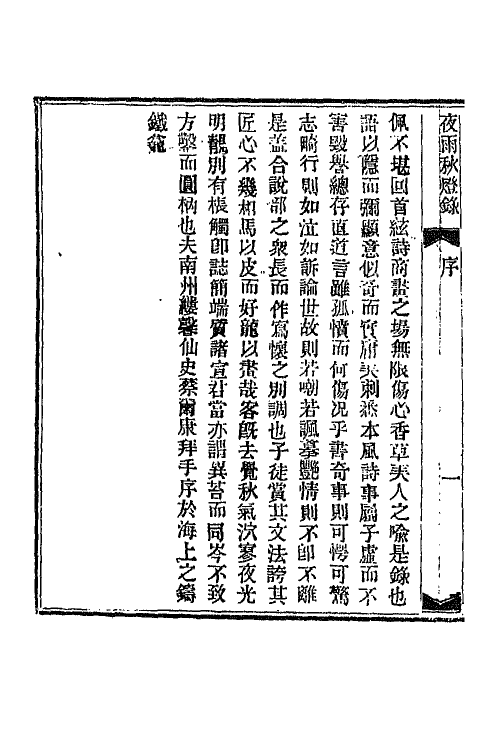 夜雨秋燈錄
序
一
佩不堪回首絃詩商畫之場無限傷心香草美人之喻是錄也
語以隱而彌顯意似奇而實庸美刺悉本風詩事屬子虛而不
害毀譽總存直道言雖孤憤而何傷况乎書奇事則可愕可驚
志畸行則如泣如訴論世故則若嘲若諷摹豔情則不卽不離
是葢合說部之衆長而作寫懷之別調也子徒賞其文法誇其
匠心不幾相馬以皮而好龍以畫哉客旣去覺秋氣泬寥夜光
明靚別有棖觸卽誌簡端質諸宣君當亦謂異苔而同岑不致
方鑿而圓枘也夫南州縷馨仙史蔡爾康拜手序於海上之鑄
鐵龕